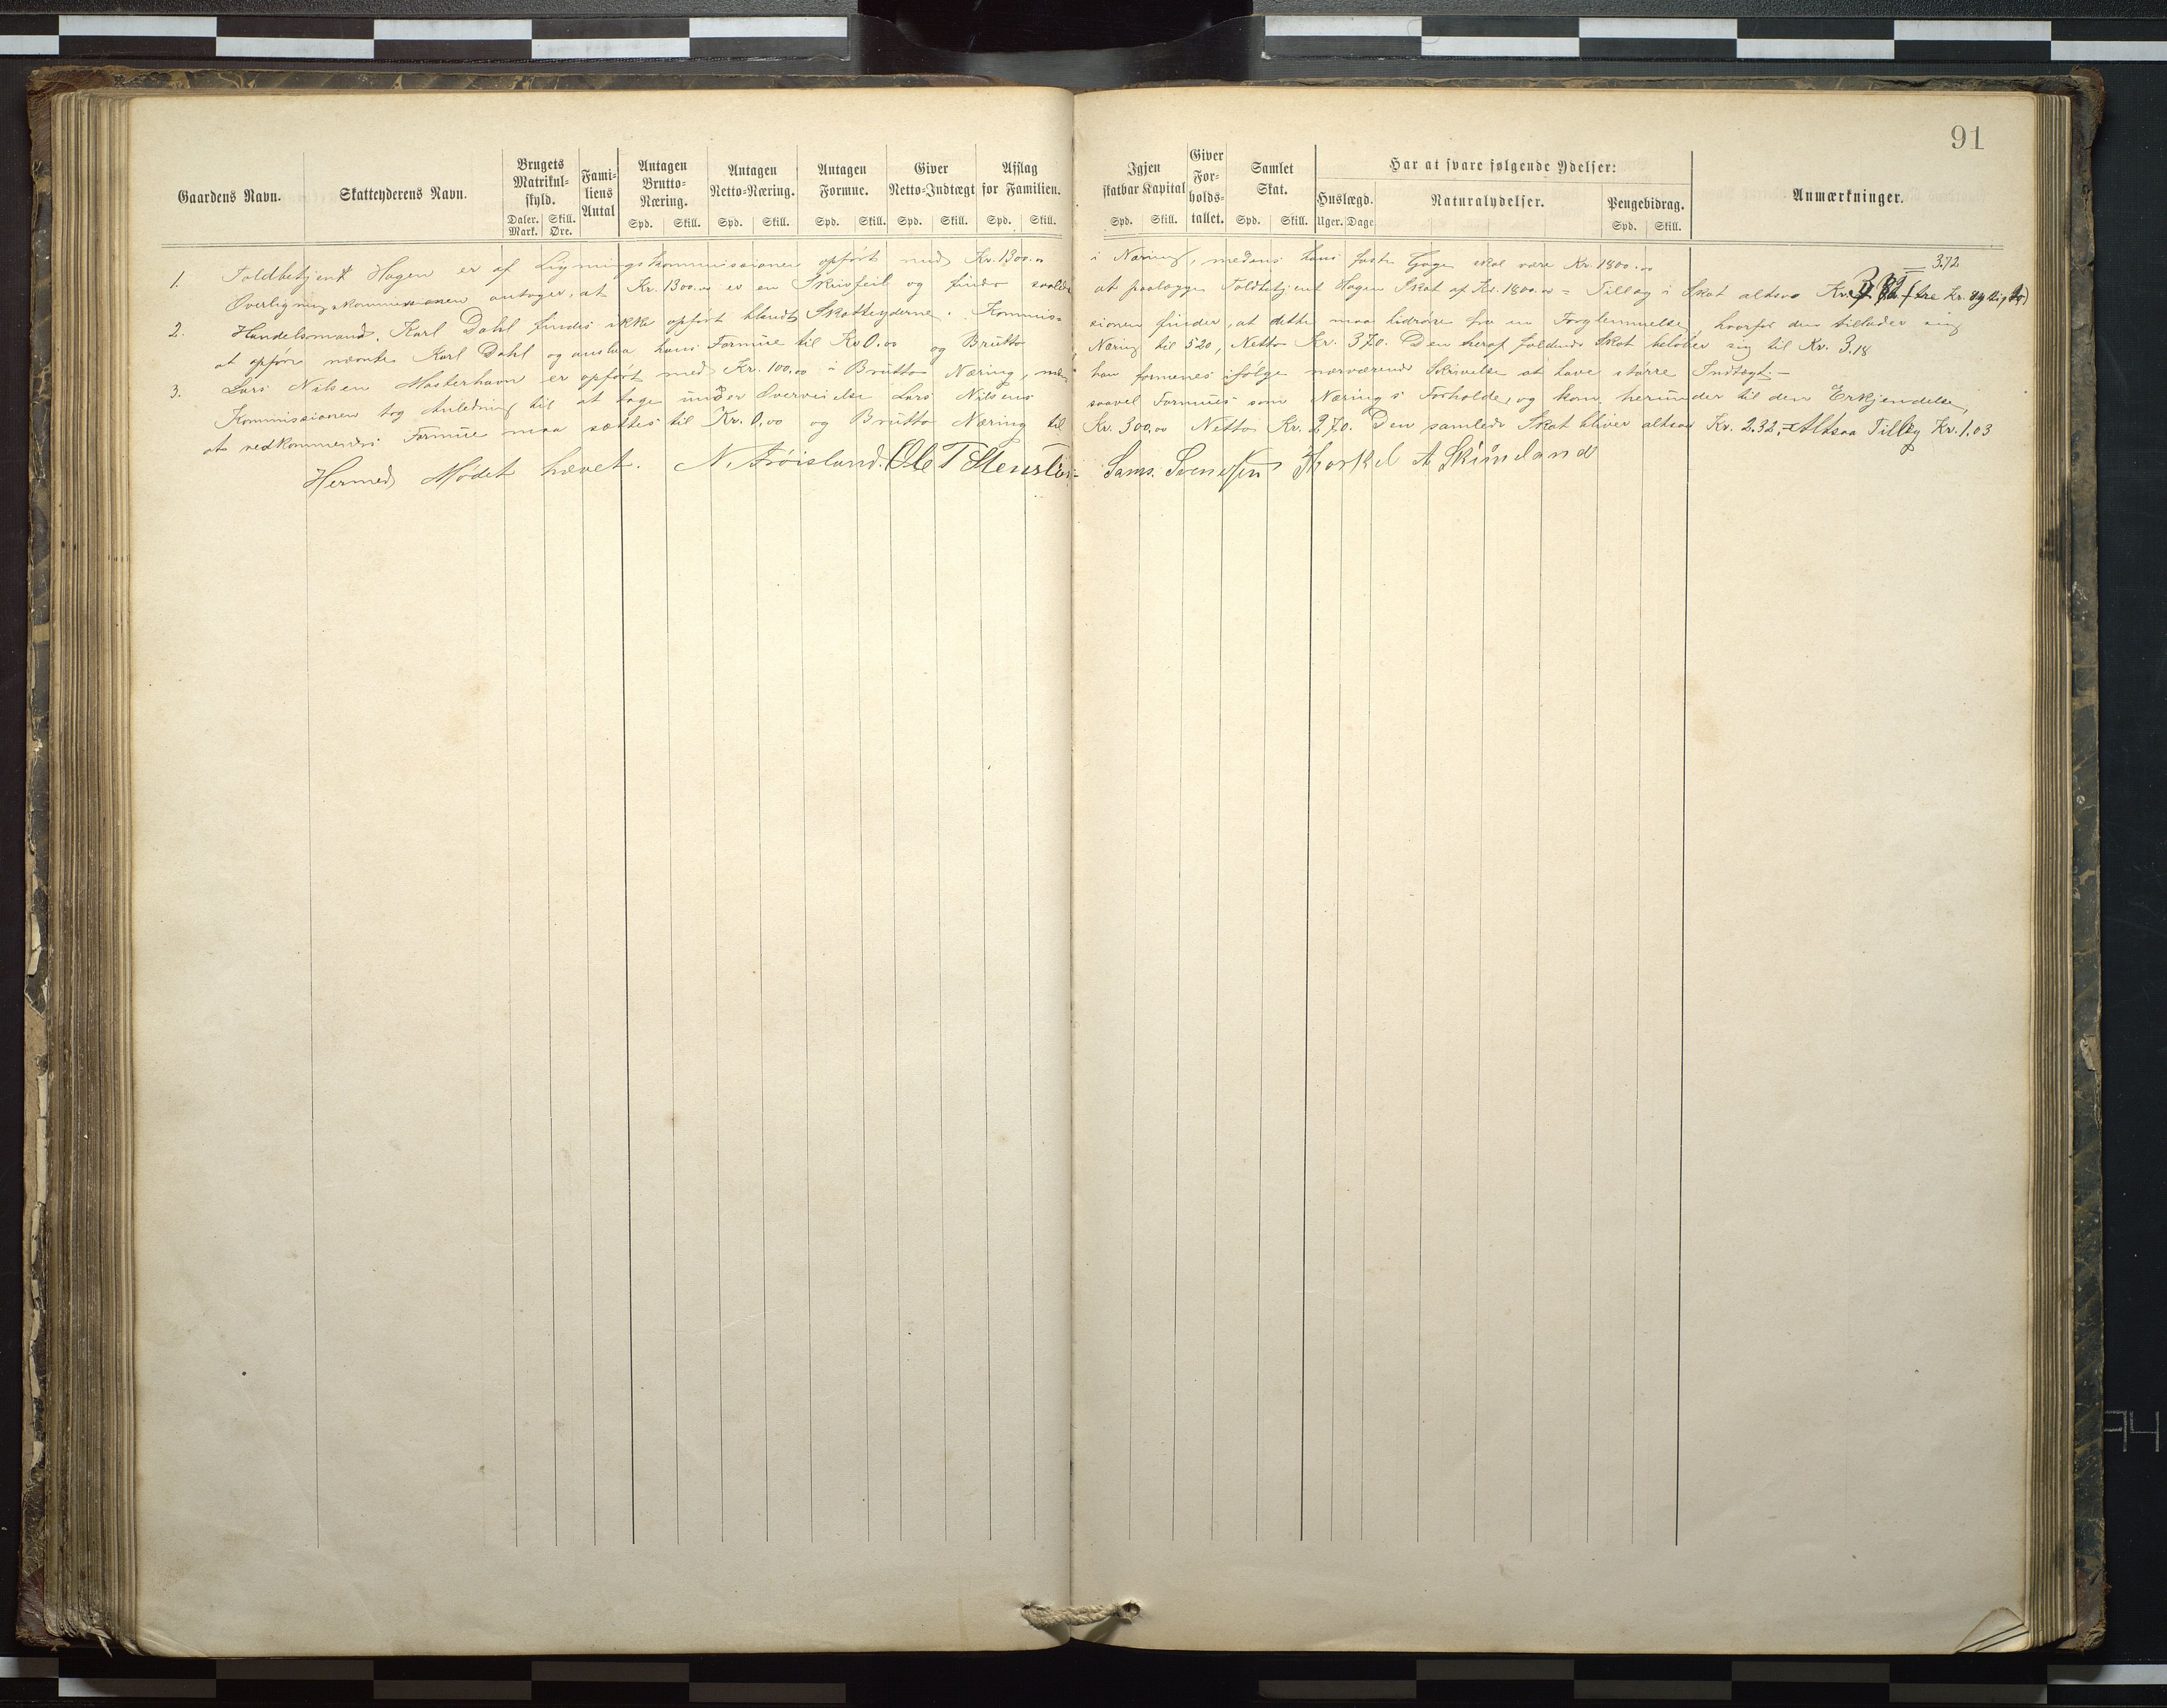 91
Gaardens Navn. Skatteyderens Navn. Brugets Matrikul-skyld. Daler. Mark. Skill. Øre. Fami-liens Antal Antagen Brutto-Næring. Spd. Skill. Antagen Netto-Næring. Spd. Skill. Antagen Formue. Spd. Skill. Giver Netto-Indtægt Spd. Skill. Afslag for Familien. Spd. Skill. Igjen skatbar Kapital Spd. Skill. Giver For-holds-tallet. Samlet Skat. Spd. Skill. Har at svare følgende Ydelser: Huslægd. Uger. Dage Naturalydelser. Pengebidrag. Spd. Skill. Anmærkninger.
1. Toldbetjent Hagen er af Ligningskommissionen opført med Kr. 1300.00 i Næring, medens hans faste Gage skal være Kr. 1800.00
3.72
Overligningskommissionen antager, at Kr. 1300.00 er en Skrivfeil og finder at paalægge Toldbetjent Hagen Skat af Kr. 1800.00 = Tillæg i Skat altsaa Kr.
2. Handelsmand, Karl Dahl findes ikke opført blandt Skatteyderne. Kommis-sionen finder, at dette maa hidrøre fra en Forglemmelse, hvorfor den tillader sig
at opføre nævnte Karl Dahl og anslaa hans Formue til Kr 0.00 og Brutto Næring til 520, Netto Kr. 370. Den heraf faldende Skat beløber sig til Kr. 3.18
3. Lars Nilsen Mosterhavn er opført med Kr. 100.00 i Brutto Næring, men han formenes ifølge nærværende Skrivelse at have større Indtægt.—
Kommissionen tog Anledning til at tage under Overveielse Lars Nilsens saavel Formues som Nærings Forholde, og kom herunder til den Erkjendelse,
at vedkommendes Formue maa sættes til Kr. 0.00 og Brutto Næring til Kr. 300.00 Netto Kr. 270. Den samlede Skat bliver altsaa Kr. 2.32. Altsaa Tillæg Kr. 1.03
Hermed Mødet hævet. N. Frøisland. Ole T Stenslie Sams. Svenssen Thorkel A Skimeland